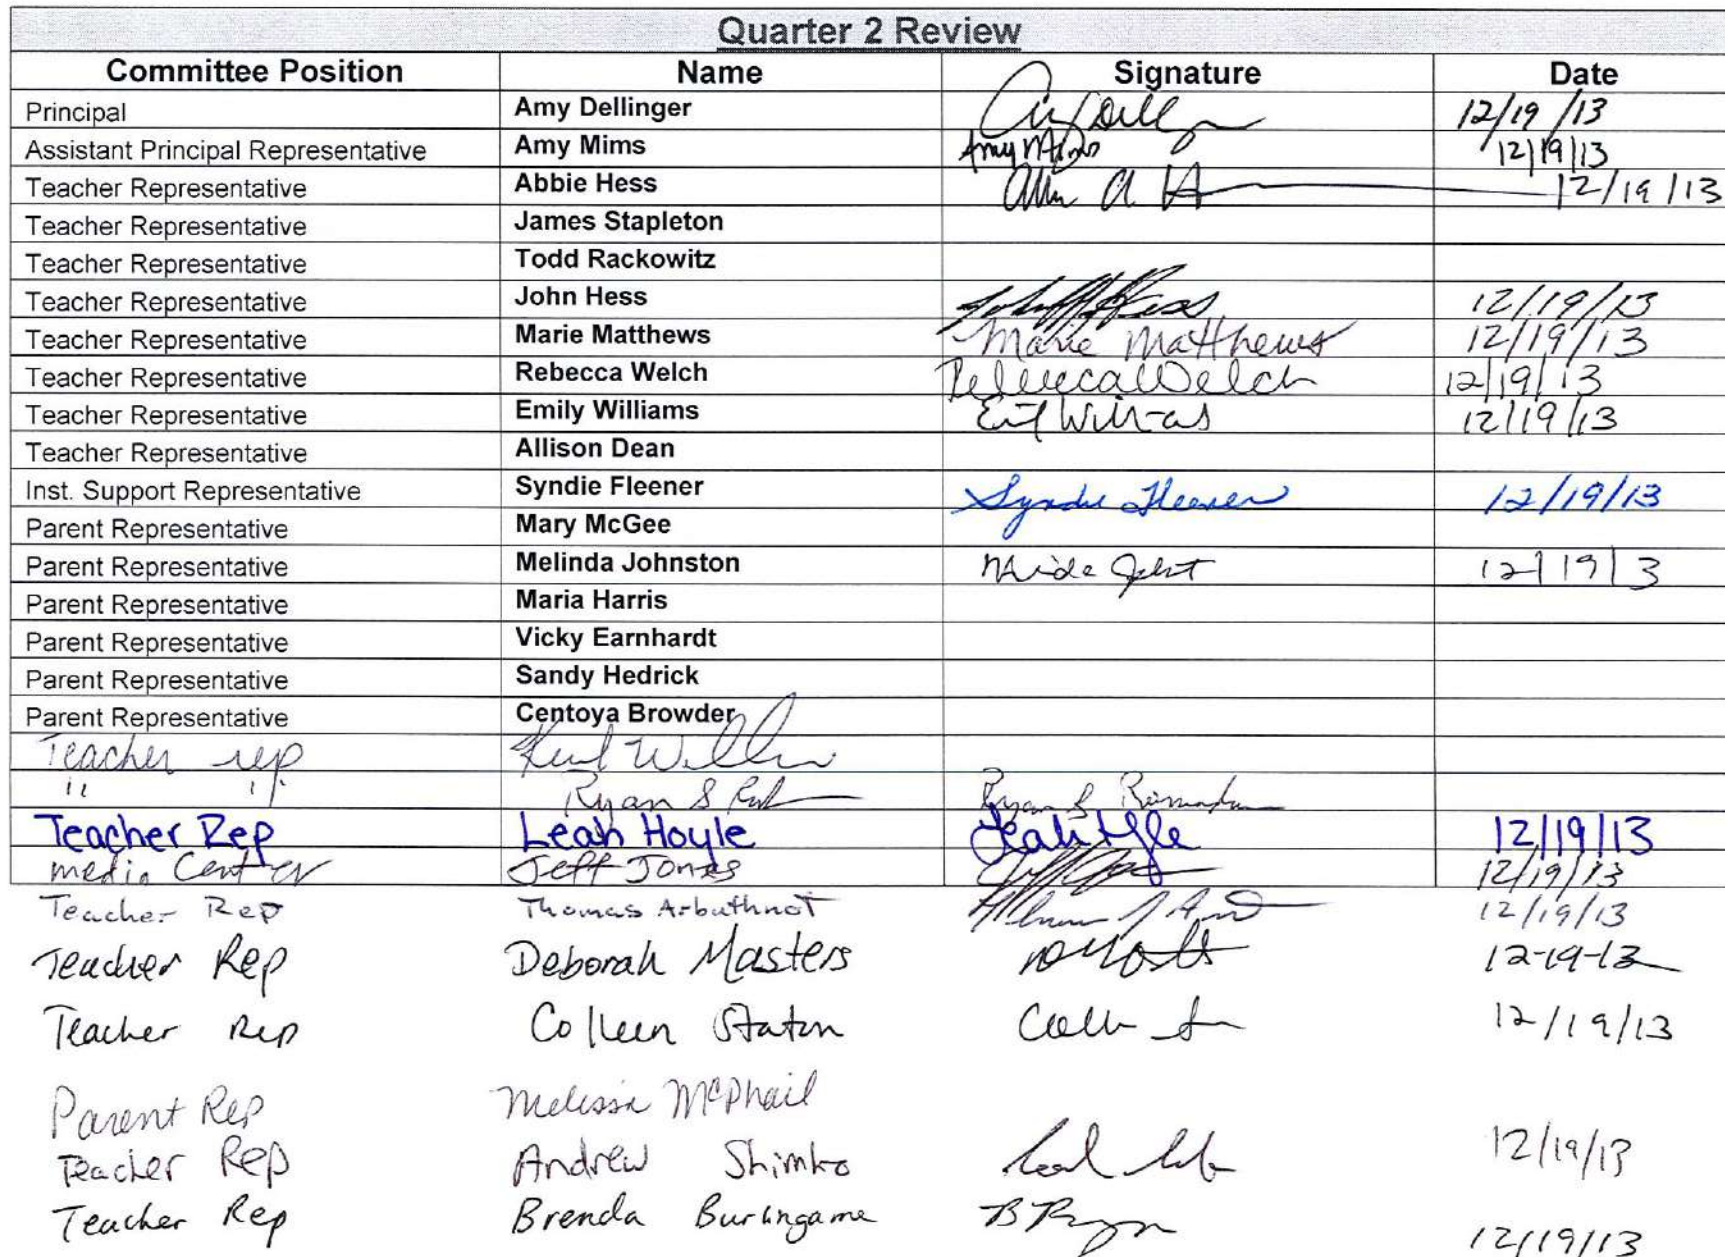 Quarter 2 Review
Committee Position Name Signature Date
Principal Amy Dellinger 12/19/13
Assistant Principal Representative Amy Mims Amy Mims 12/19/13
Teacher Representative Abbie Hess 12/19/13
Teacher Representative James Stapleton
Teacher Representative Todd Rackowitz
Teacher Representative John Hess John Hess 12/19/13
Teacher Representative Marie Matthews Marie Matthews 12/19/13
Teacher Representative Rebecca Welch Rebecca Welch 12/19/13
Teacher Representative Emily Williams 12/19/13
Teacher Representative Allison Dean
Inst. Support Representative Syndie Fleener Syndie Fleener 12/19/13
Parent Representative Mary McGee
Parent Representative Melinda Johnston 12/19/3
Parent Representative Maria Harris
Parent Representative Vicky Earnhardt
Parent Representative Sandy Hedrick
Parent Representative Centoya Browder
Teacher rep
" " Ryan S Ryan S
Teacher Rep Leah Hoyle Leah Hoyle 12/19/13
media Center Jeff Jones 12/19/13
Teacher Rep Thomas Arbuthnot 12/19/13
Teacher Rep Deborah Masters 12-19-13
Teacher Rep Colleen Staton 12/19/13
Parent Rep Melissa McPhail
Teacher Rep Andrew Shimko 12/19/13
Teacher Rep Brenda Burlingame 12/19/13